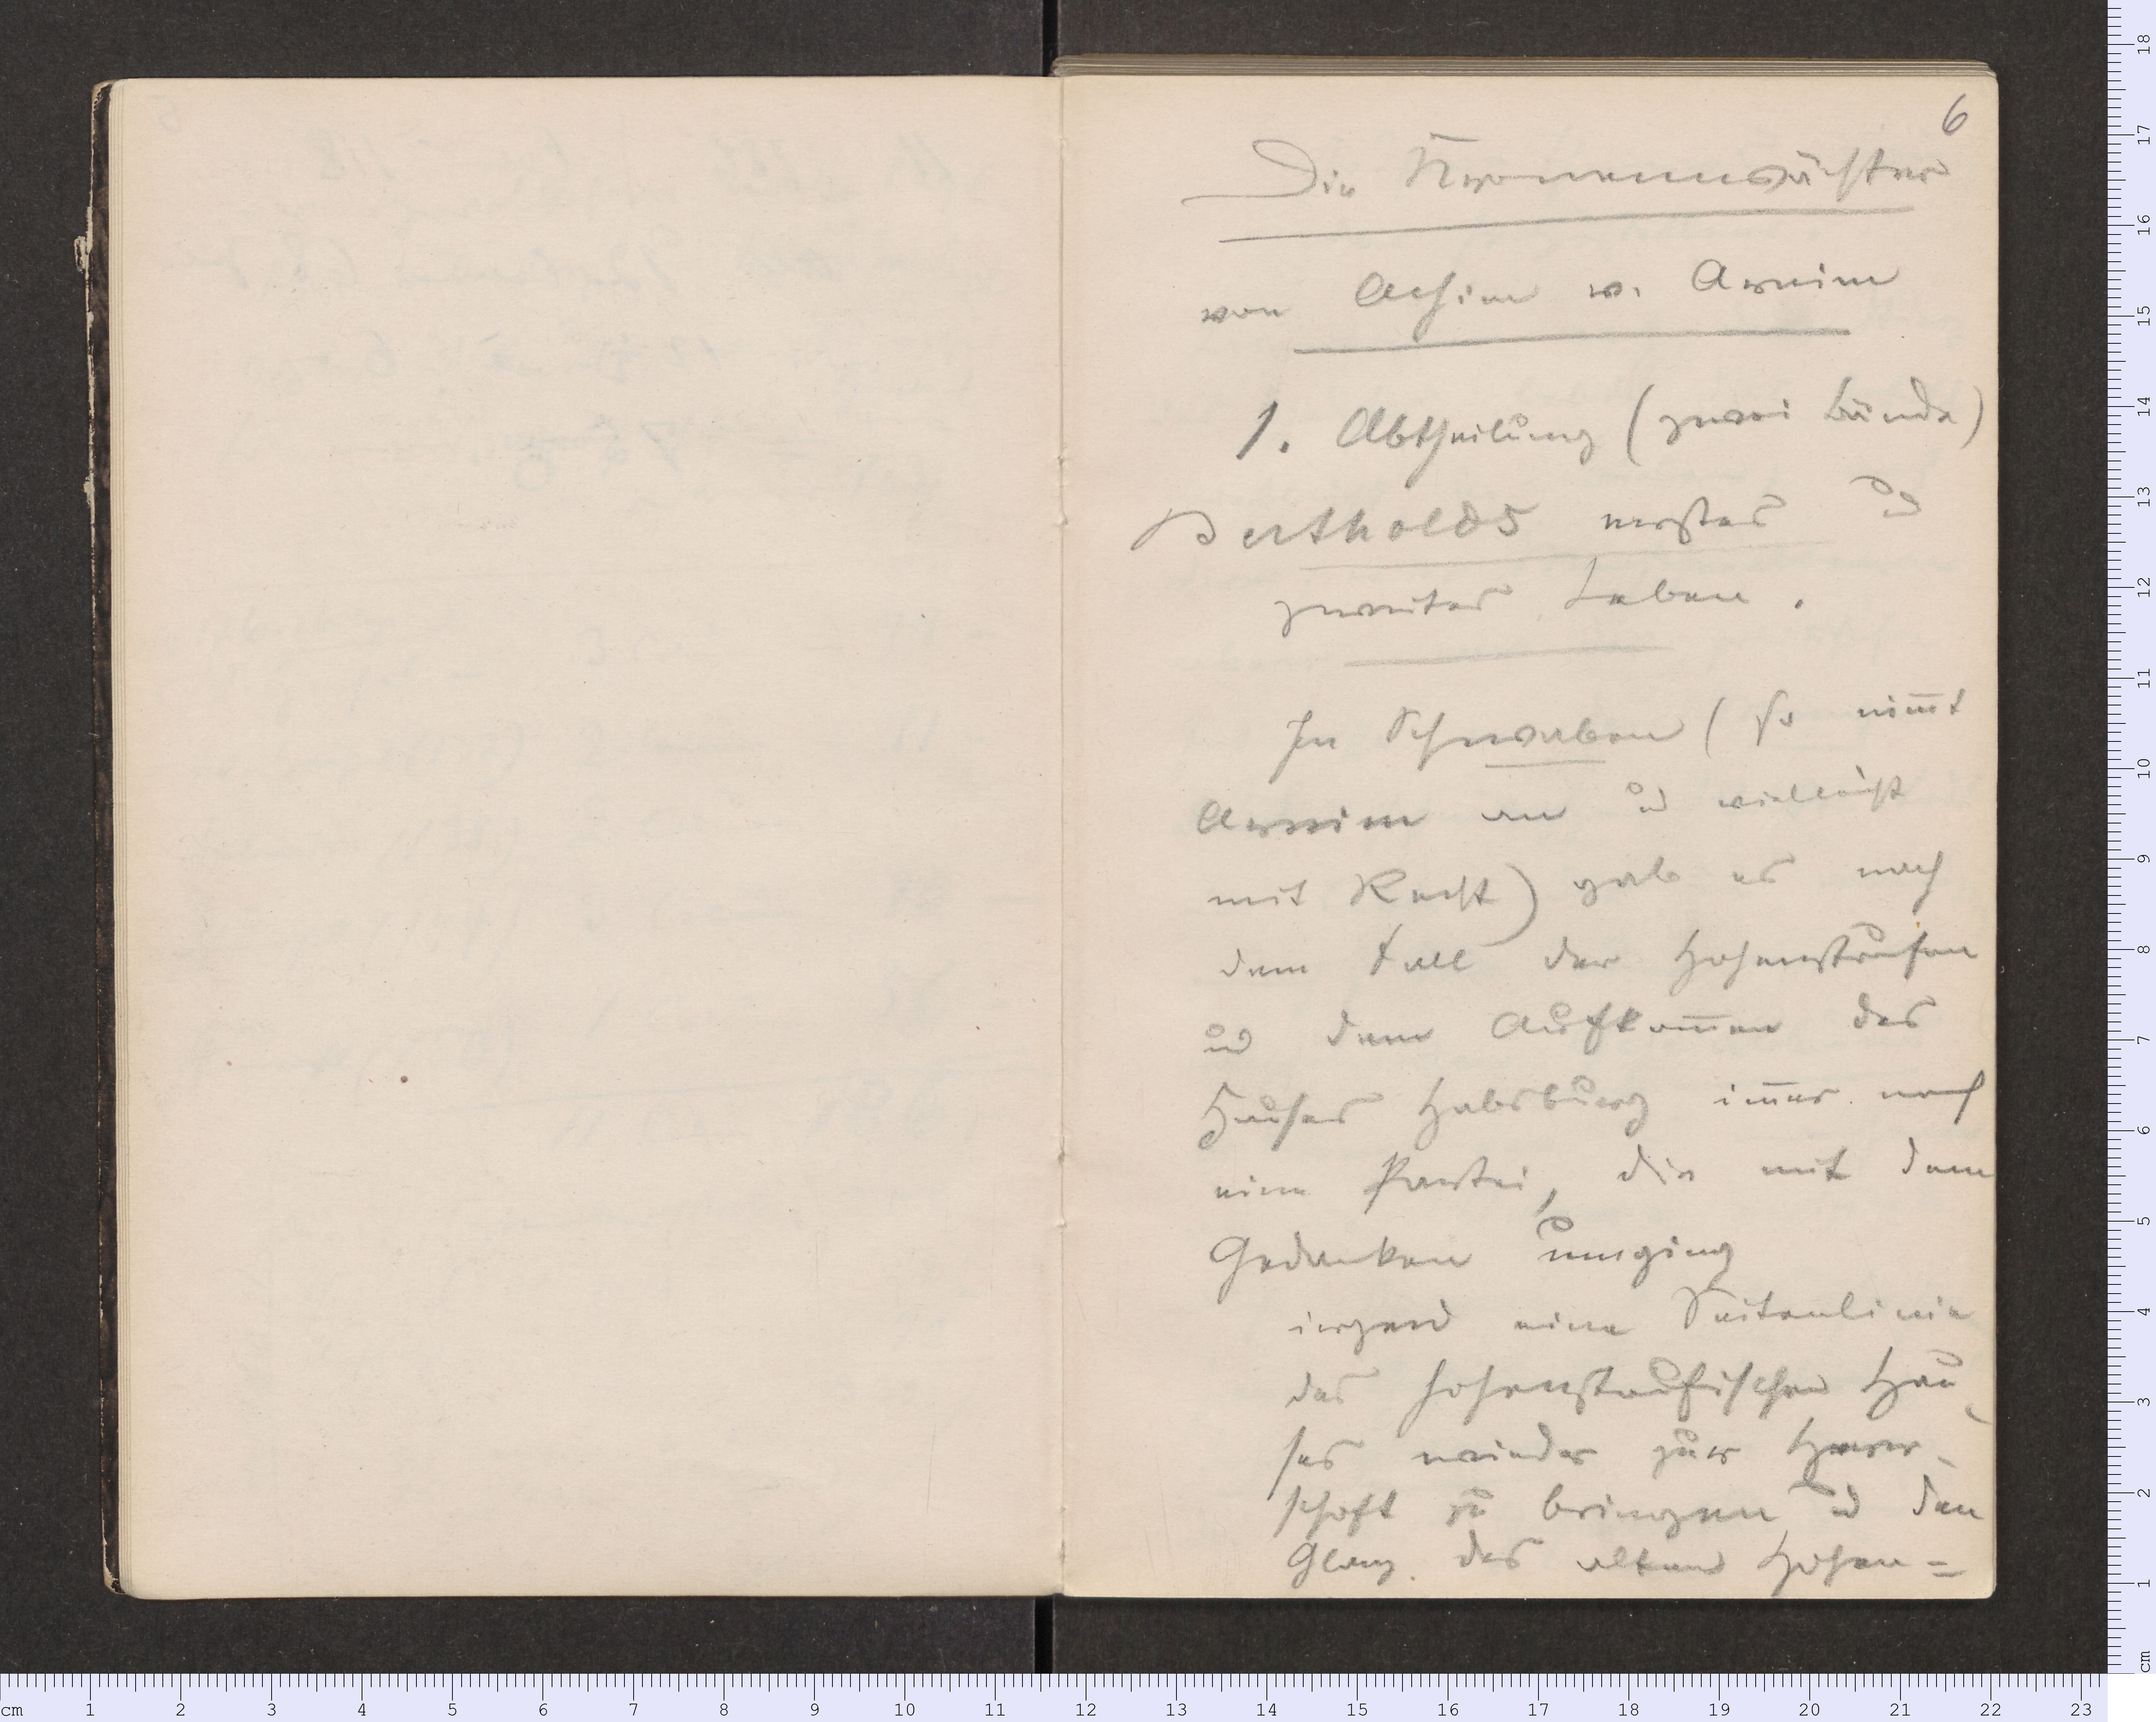 6
Die Kronenwächter
von Achim v. Arnim
1. Abtheilung (zwei Bände)
Bertholds erstes und
zweites Leben.
In Schwaben (so nim̅t
Arnim an ud vielleicht
mit Recht) gab es nach
dem Fall der Hohenstaufen
ud dem Aufkom̅en des
Hauses Habsburg im̅er noch
eine Partei, die mit dem
Gedanken umging
irgend eine Seitenlinie
des hohenstaufischen Hau-
ses wieder zur Herr-
schaft zu bringen ud den
Glanz des alten Hohen=